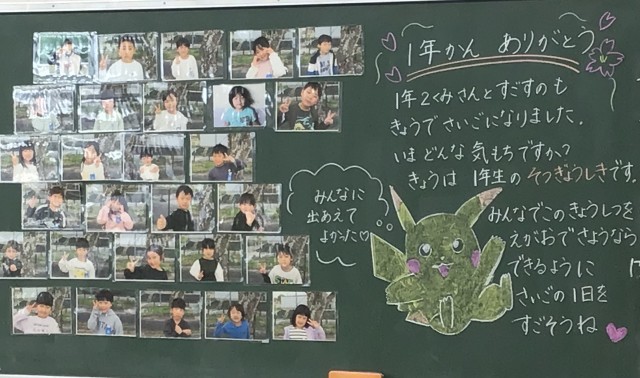 1年かん ありがとう
1年2くみさんとすごすのも
きょうでさいごになりました。
いまどんな気もちですか?
きょうは 1年生のそつぎょうしきです。
みんなでこのきょうしつを
えがおでさようなら
できるように
さいごの1日を
すごそうね
みんなに
出あえて
よかった♡